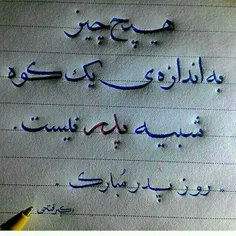 هیچ چیز
به اندازه‌ی یک کوه
شبیه پدر نیست.
روز پدر مُبارک.